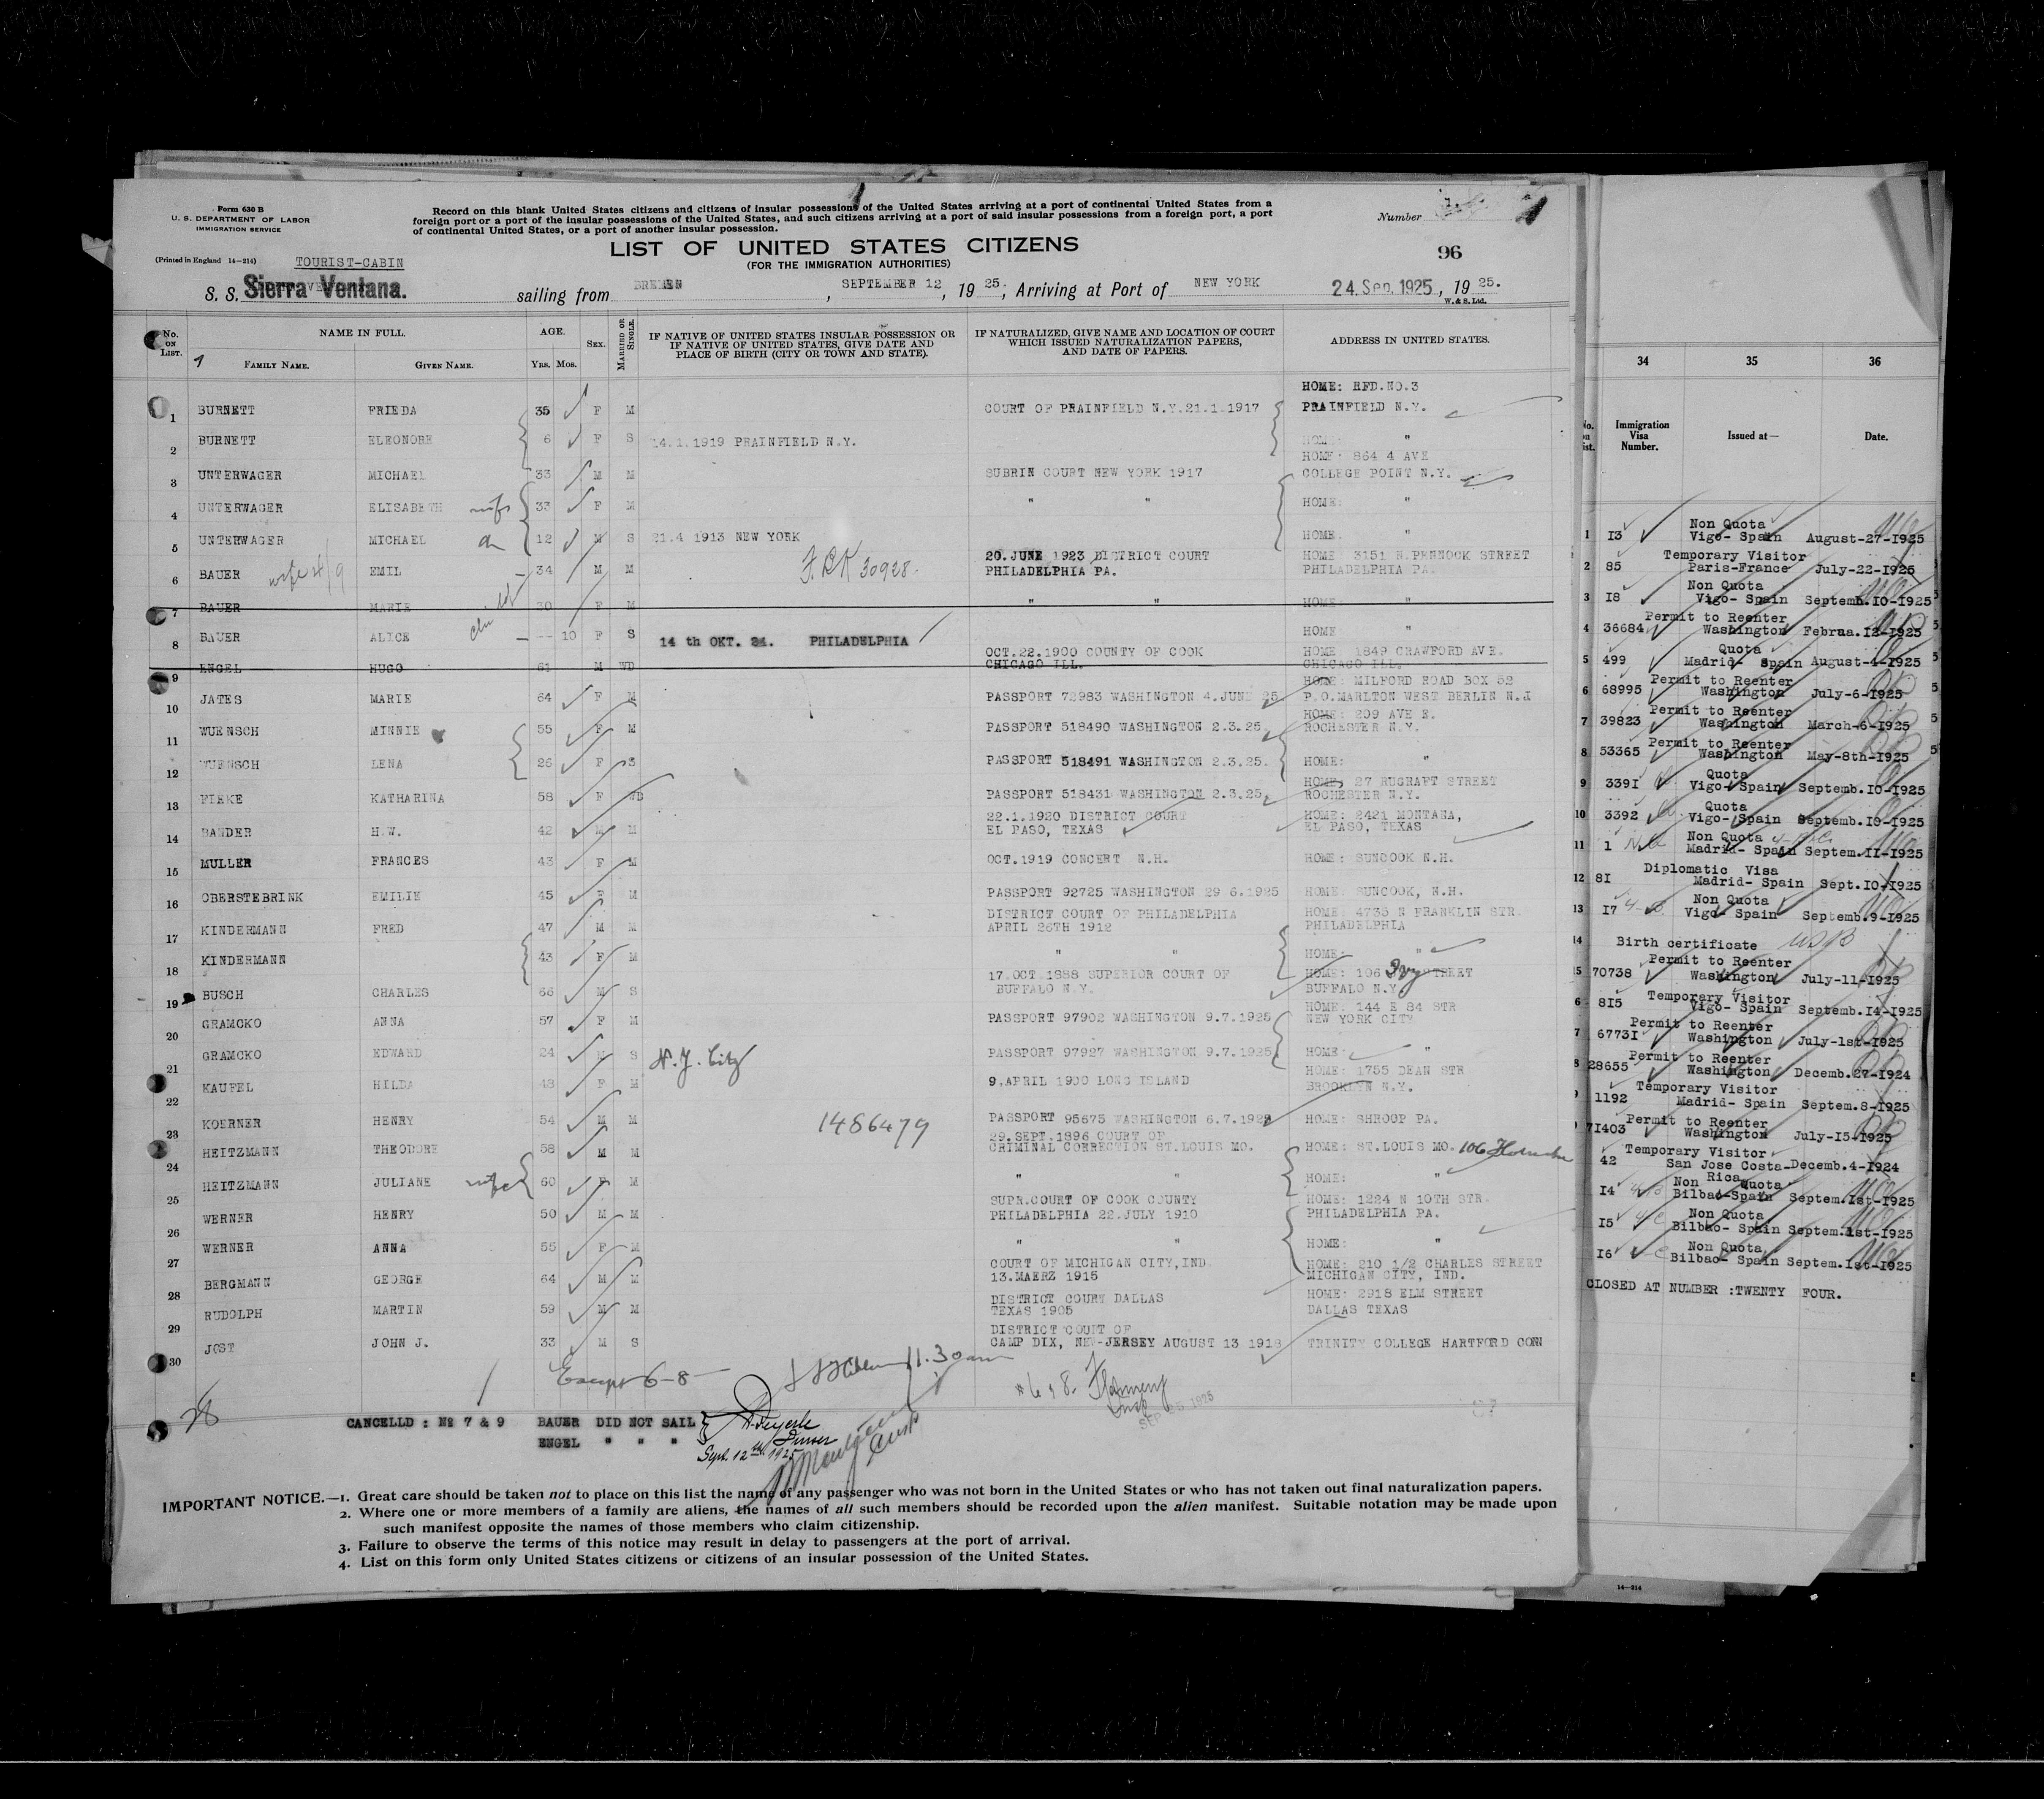 Form 630 B
U. S. DEPARTMENT OF LABOR
IMMIGRATION SERVICE
(Printed in England 14—214)
Record on this blank United States citizens and citizens of insular possessions of the United States arriving at a port of continental United States from a
foreign port or a port of the insular possessions of the United States, and such citizens arriving at a port of said insular possessions from a foreign port, a port
of continental United States, or a port of another insular possession.
Number
LIST OF UNITED STATES CITIZENS
(FOR THE IMMIGRATION AUTHORITIES)
96
TOURIST-CABIN
S. S. Sierra Ventana. sailing from BREMEN, SEPTEMBER 12, 19 25, Arriving at Port of NEW YORK 24. Sep. 1925, 19 25.
W. & S. Ltd.
No. ON LIST. NAME IN FULL. FAMILY NAME. GIVEN NAME. AGE. YRS. MOS. SEX. MARRIED OR SINGLE. IF NATIVE OF UNITED STATES INSULAR POSSESSION OR IF NATIVE OF UNITED STATES, GIVE DATE AND PLACE OF BIRTH (CITY OR TOWN AND STATE). IF NATURALIZED, GIVE NAME AND LOCATION OF COURT WHICH ISSUED NATURALIZATION PAPERS, AND DATE OF PAPERS. ADDRESS IN UNITED STATES.
HOME: RFD.NO.3
1 BURNETT FRIEDA 35 F M COURT OF PRAINFIELD N.Y.21.1.1917 PRAINFIELD N.Y.
2 BURNETT ELEONORE 6 F S 14.1.1919 PRAINFIELD N.Y. HOME: "
HOME: 864 4 AVE
3 UNTERWAGER MICHAEL 33 M M SUBRIN COURT NEW YORK 1917 COLLEGE POINT N.Y.
4 UNTERWAGER ELISABETH wife 33 F M " " HOME: "
5 UNTERWAGER MICHAEL 12 M S 21.4 1913 NEW YORK HOME. "
20. JUNE 1923 DISTRICT COURT HOME 3151 N.PENNOCK STREET
6 BAUER EMIL 34 M M 30928. PHILADELPHIA PA. PHILADELPHIA PA.
7 BAUER MARIE 30 F M " " HOME "
8 BAUER ALICE — -- 10 F S 14 th OKT. 24. PHILADELPHIA HOME "
OCT.22.1900 COUNTY OF COOK HOME 1849 CRAWFORD AVE.
9 ENGEL HUGO 61 M WD CHICAGO ILL. CHICAGO ILL.
HOME: MILFORD ROAD BOX 52
10 JATES MARIE 64 F M PASSPORT 72983 WASHINGTON 4.JUNE 25 P.O.MARLTON WEST BERLIN N.J
HOME: 209 AVE E.
11 WUENSCH MINNIE 55 F M PASSPORT 518490 WASHINGTON 2.3.25. ROCHESTER N.Y.
12 WUENSCH LENA 26 F S PASSPORT 518491 WASHINGTON 2.3.25. HOME: "
HOME: 27 RUGRAFT STREET
13 FIEKE KATHARINA 58 F WD PASSPORT 518431 WASHINGTON 2.3.25. ROCHESTER N.Y.
22.1.1920 DISTRICT COURT HOME: 2421 MONTANA,
14 BANDER H.W. 42 M M EL PASO, TEXAS EL PASO, TEXAS
15 MULLER FRANCES 43 F M OCT.1919 CONCERT N.H. HOME: SUNCOOK N.H.
16 OBERSTEBRINK EMILIE 45 F M PASSPORT 92725 WASHINGTON 29 6.1925 HOME: SUNCOOK, N.H.
DISTRICT COURT OF PHILADELPHIA HOME: 4735 N FRANKLIN STR.
17 KINDERMANN FRED 47 M M APRIL 26TH 1912 PHILADELPHIA
18 KINDERMANN 43 F M " " HOME: "
17.OCT.1888 SUPERIOR COURT OF HOME: 106 Ivy STREET
19 BUSCH CHARLES 66 M S BUFFALO N.Y. BUFFALO N.Y.
HOME: 144 E 84 STR
20 GRAMCKO ANNA 57 F M PASSPORT 97902 WASHINGTON 9.7.1925 NEW YORK CITY
21 GRAMCKO EDWARD 24 M S N.Y. City PASSPORT 97927 WASHINGTON 9.7.1925 HOME: "
HOME: 1755 DEAN STR
22 KAUFEL HILDA 43 F M 9.APRIL 1900 LONG ISLAND BROOKLYN N.Y.
23 KOERNER HENRY 54 M M 1486479 PASSPORT 95675 WASHINGTON 6.7.1925 HOME: SHROOP PA.
29.SEPT.1896 COURT OF
24 HEITZMANN THEODORE 58 M M CRIMINAL CORRECTION ST.LOUIS MO. HOME: ST.LOUIS MO. 106
25 HEITZMANN JULIANE wife 60 F M " " HOME: "
SUPR.COURT OF COOK COUNTY HOME: 1224 N 10TH STR.
26 WERNER HENRY 50 M M PHILADELPHIA 22.JULY 1910 PHILADELPHIA PA.
27 WERNER ANNA 55 F M " " HOME: "
COURT OF MICHIGAN CITY,IND. HOME: 210 1/2 CHARLES STREET
28 BERGMANN GEORGE 64 M M 13.MAERZ 1915 MICHIGAN CITY, IND.
DISTRICT COURT DALLAS HOME: 2918 ELM STREET
29 RUDOLPH MARTIN 59 M M TEXAS 1905 DALLAS TEXAS
DISTRICT COURT OF
30 JOST JOHN J. 33 M S CAMP DIX, NEW-JERSEY AUGUST 13 1918 TRINITY COLLEGE HARTFORD CONN
Except 6-8 11.30 am
28
SEP 1925
CANCELLD : No 7 & 9 BAUER DID NOT SAIL
ENGEL " " "
Sept. 12th 1925
IMPORTANT NOTICE.—1. Great care should be taken not to place on this list the name of any passenger who was not born in the United States or who has not taken out final naturalization papers.
2. Where one or more members of a family are aliens, the names of all such members should be recorded upon the alien manifest. Suitable notation may be made upon
such manifest opposite the names of those members who claim citizenship.
3. Failure to observe the terms of this notice may result in delay to passengers at the port of arrival.
4. List on this form only United States citizens or citizens of an insular possession of the United States.
34 35 36
Immigration Visa Number. Issued at— Date.
1 13 Non Quota Vigo- Spain August-27-1925
2 85 Temporary Visitor Paris-France July-22-1925
3 18 Non Quota Vigo- Spain Septemb.10-1925
4 36684 Permit to Reenter Washington Februa.12-1925
5 499 Quota Madrid- Spain August-4-1925
6 68995 Permit to Reenter Washington July-6-1925
7 39823 Permit to Reenter Washington March-6-1925
8 53365 Permit to Reenter Washington May-8th-1925
9 3391 Quota Vigo-Spain Septemb.10-1925
10 3392 Quota Vigo-Spain Septemb.10-1925
11 1 Non Quota Madrid- Spain Septem.11-1925
12 81 Diplomatic Visa Madrid- Spain Sept.10-1925
13 17 Non Quota Vigo- Spain Septemb.9-1925
14 Birth certificate
5 70738 Permit to Reenter Washington July-11-1925
6 815 Temporary Visitor Vigo- Spain Septemb.14-1925
7 67731 Permit to Reenter Washington July-1st-1925
8 28655 Permit to Reenter Washington Decemb.27-1924
1192 Temporary Visitor Madrid- Spain Septem.8-1925
71403 Permit to Reenter Washington July-15-1925
42 Temporary Visitor San Jose Costa-Rica Decemb.4-1924
14 Non Quota Bilbao-Spain Septem.1st-1925
15 Non Quota Bilbao- Spain Septem.1st-1925
16 Non Quota Bilbao- Spain Septem.1st-1925
CLOSED AT NUMBER :TWENTY FOUR.
14—214